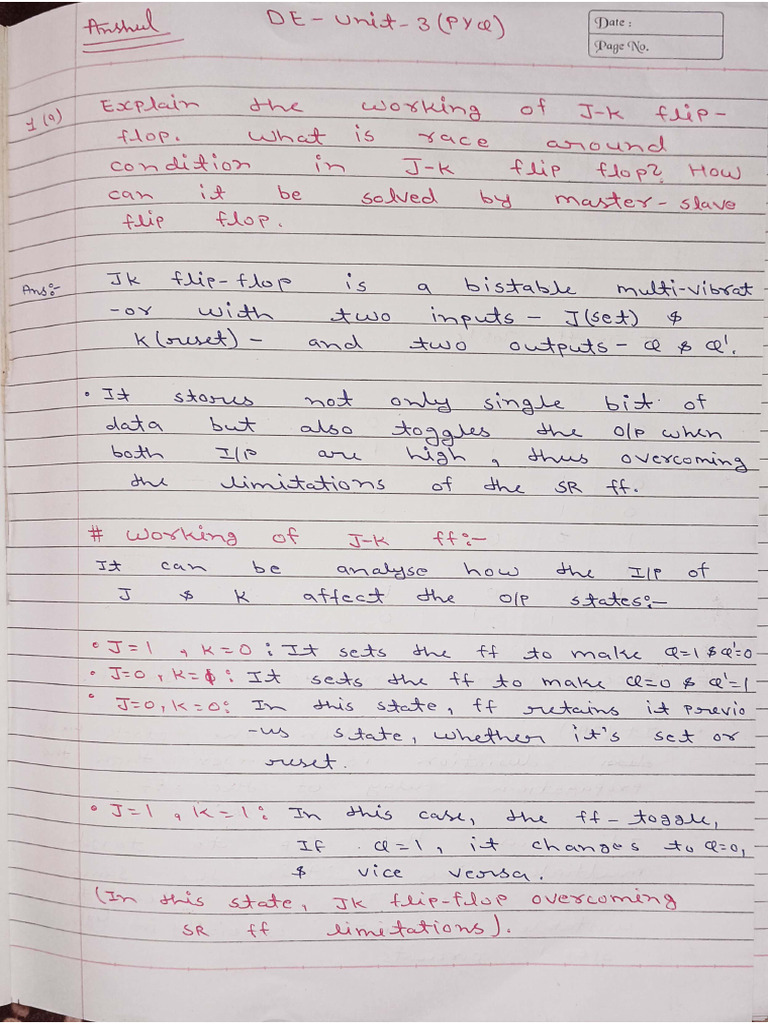 Anshul
DE - Unit - 3 (PYQ)
Date :
Page No.
1 (a) Explain the working of J-K flip-
flop. What is race around
condition in J-K flip flop? How
can it be solved by master-slave
flip flop.
Ans:- JK flip-flop is a bistable multi-vibrat
-or with two inputs - J(set) &
K(reset) - and two outputs - Q & Q'.
• It stores not only single bit of
data but also toggles the O/P when
both I/P are high, thus overcoming
the limitations of the SR ff.
# Working of J-K ff:-
It can be analyse how the I/P of
J & K affect the O/P states:-
• J=1, K=0: It sets the ff to make Q=1 & Q'=0
• J=0, K=1: It sets the ff to make Q=0 & Q'=1
• J=0, K=0: In this state, ff retains it previo
-us state, whether it's set or
reset.
• J=1, K=1: In this case, the ff - toggle,
If Q=1, it changes to Q=0,
& vice versa.
(In this state, JK flip-flop overcoming
SR ff limitations).